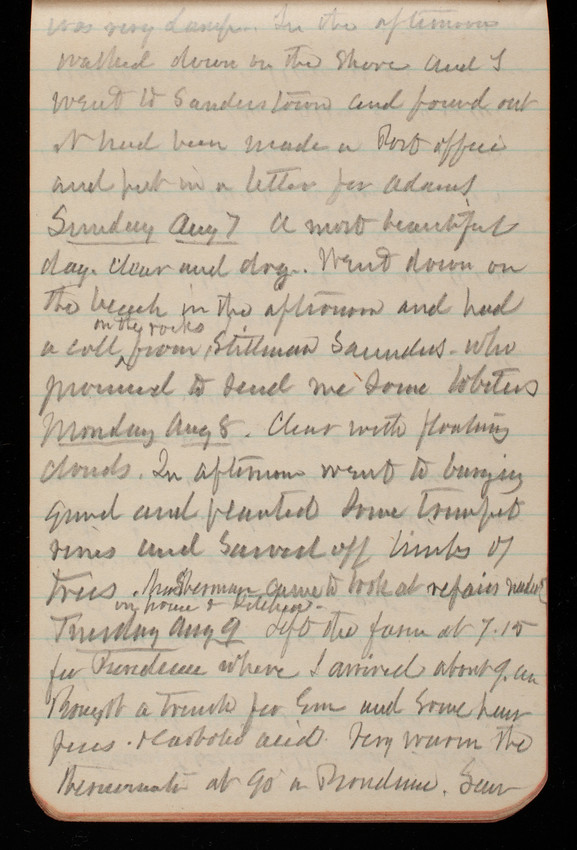 was very damp. In the afternoon
walked down on the shore and I
went to Saunderstown and found out
it had been made a Post office
and put in a letter for Adams
Sunday Aug 7 A most beautiful
day. Clear and dry. Went down on
the beach in the afternoon and had
on the rocks
a call from Stillman Saunders. who
promised to send me some lobsters
Monday Aug 8. Clear with floating
clouds. In afternoon went to burying
ground and planted some trumpet
vines and sawed off limbs of
trees. Mr Sherman came to look at repairs needed
on house & kitchen.
Tuesday Aug 9 Left the farm at 7.15
for Providence where I arrived about 9. am
Bought a trunk for Em and some
& carbolic acid. Very warm the
thermometer at 90 in Providence. Saw